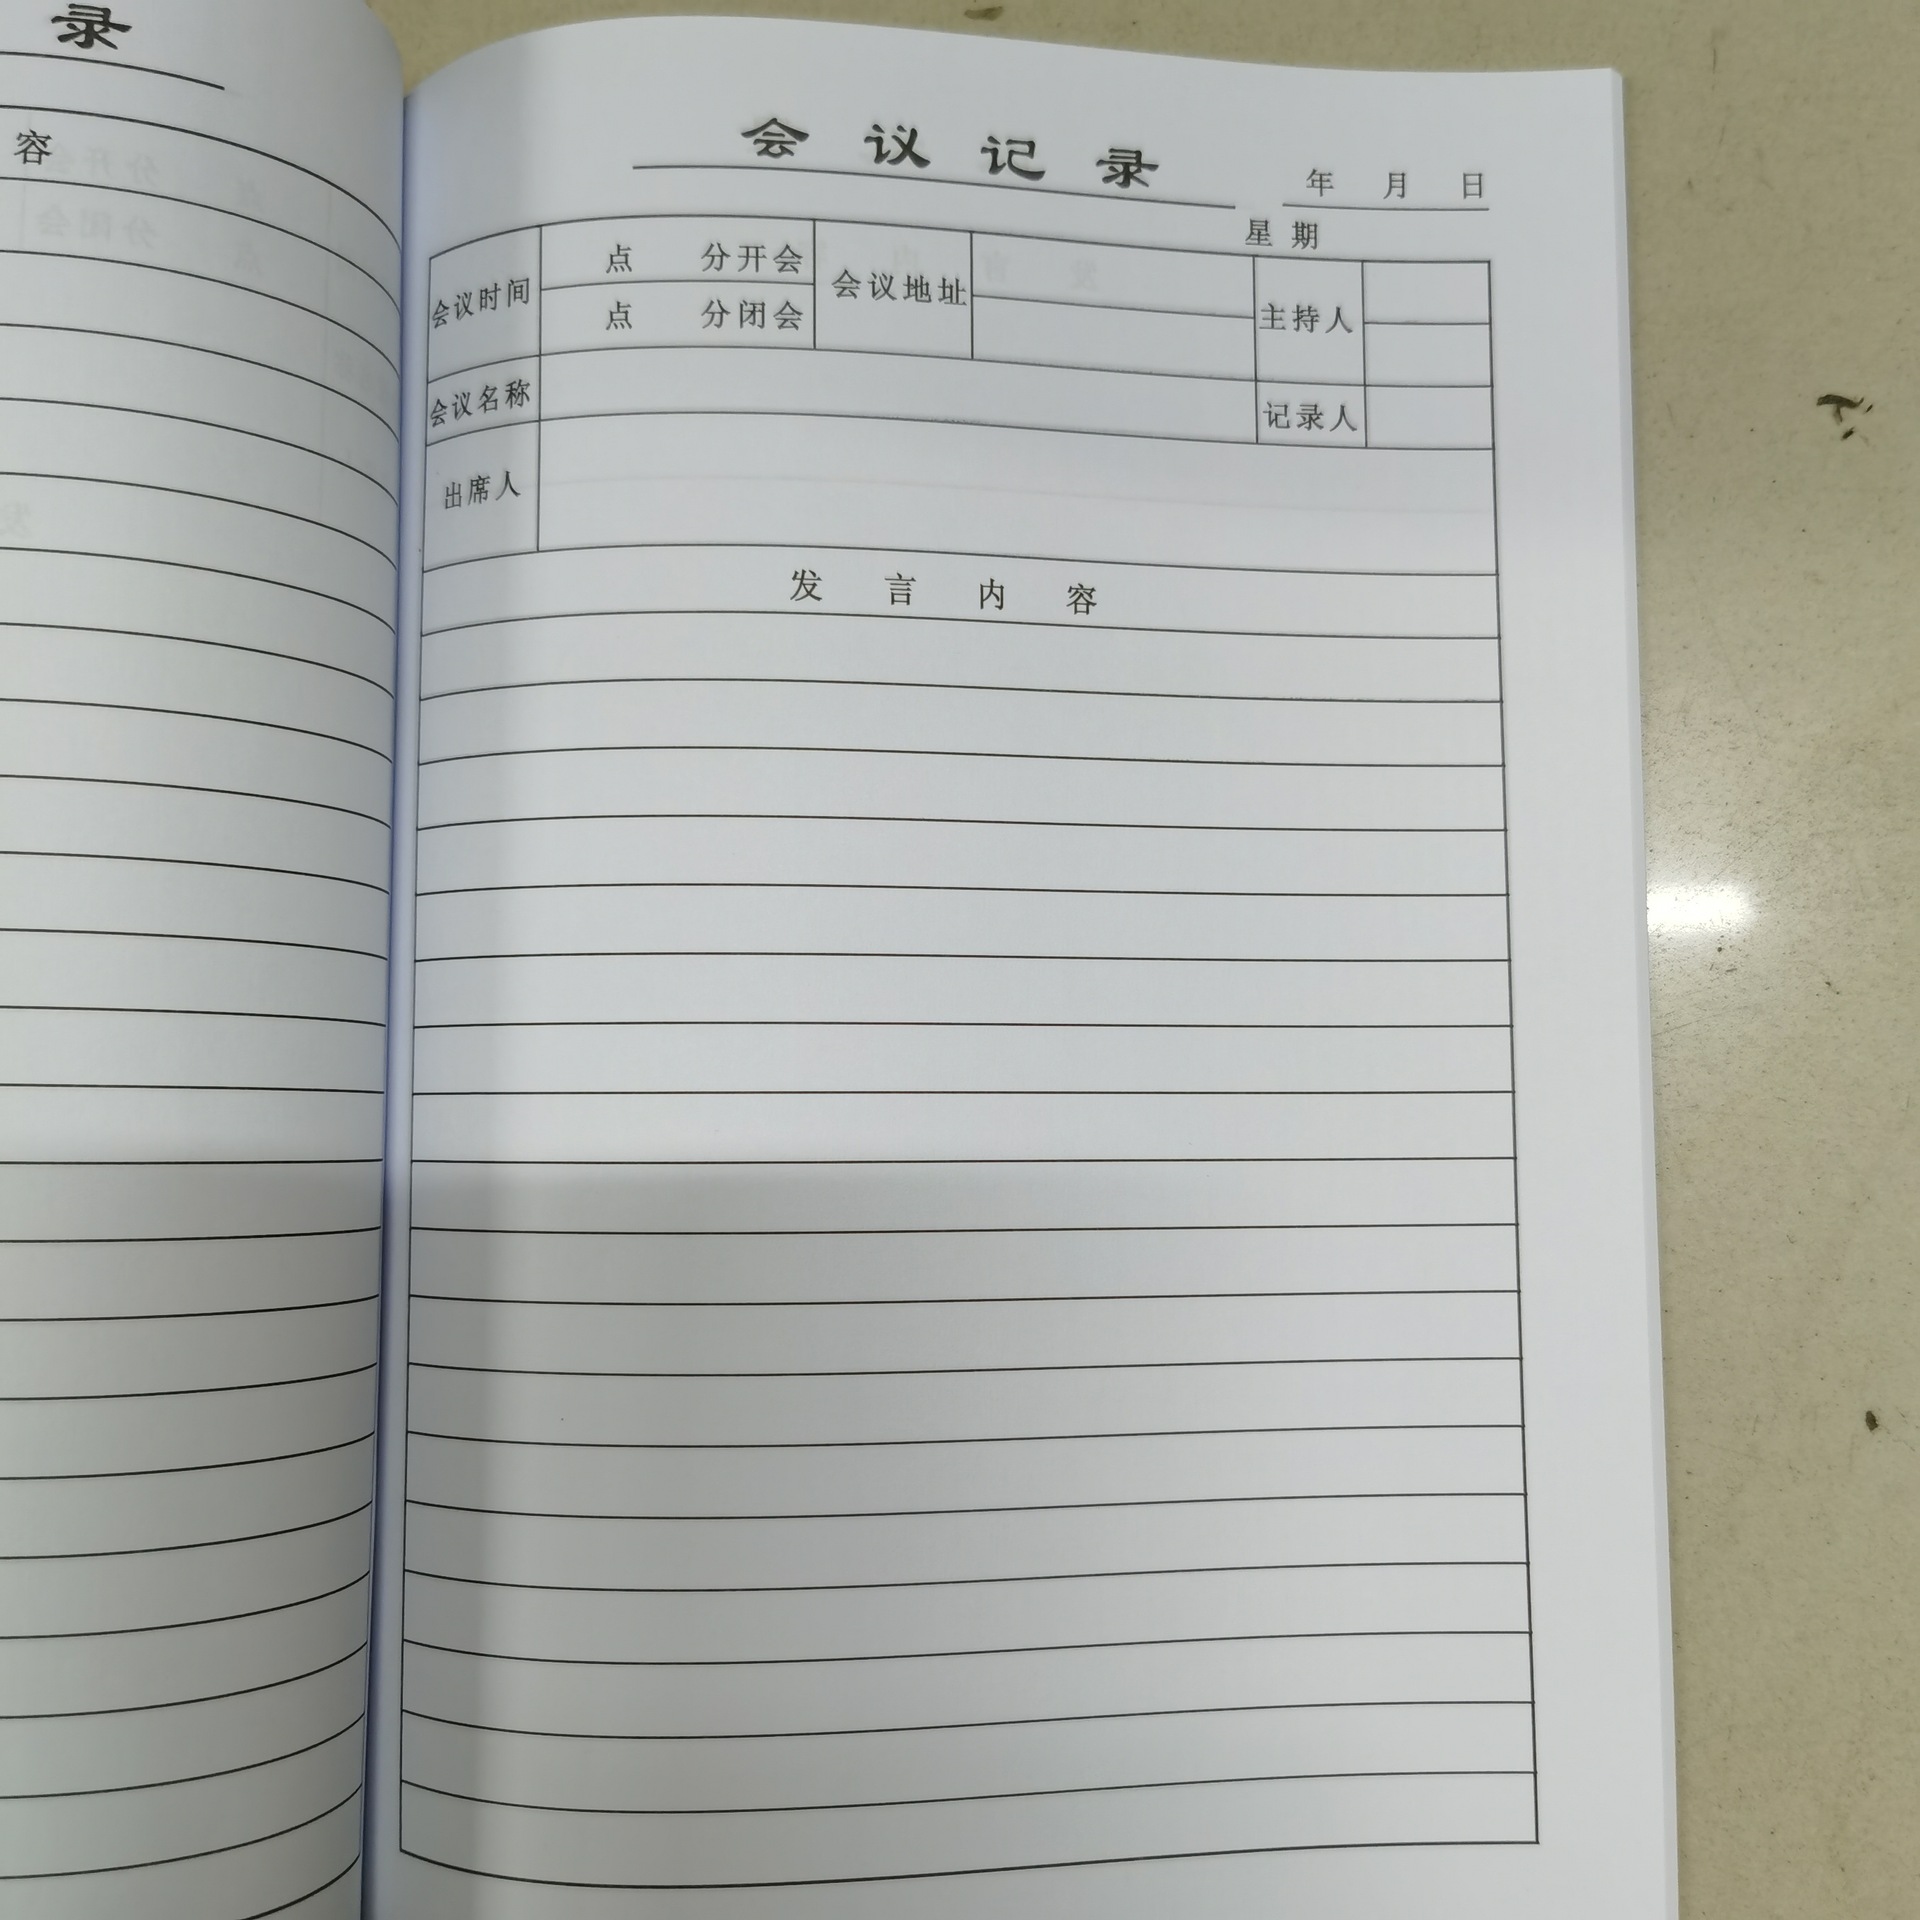 录
容
会议记录
年 月 日
星期
会议时间 点 分开会 会议地址 主持人
点 分闭会
会议名称 记录人
出席人
发言内容